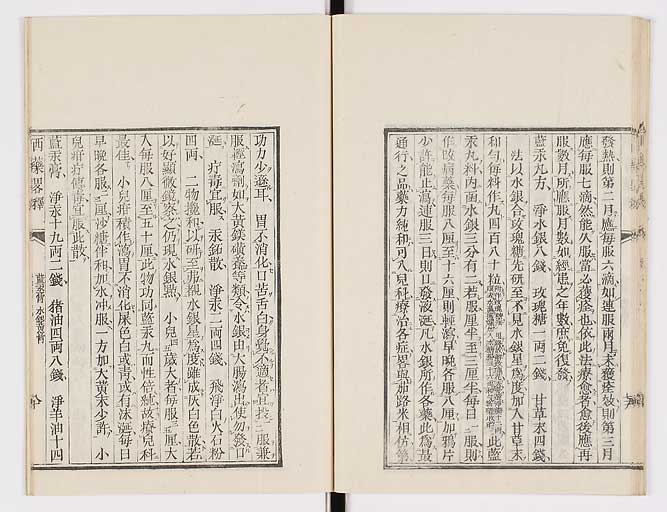 發熱則第二月應每服六滴如連服兩月未獲痊效則第三月
應每服七滴然能久服當必獲痊也依此法療愈者愈後應再
服數月所應服月數如經患之年數庶免復發
藍汞丸方 淨水銀八錢 玫瑰糖一兩二錢 甘草末四錢
法以水銀合玫瑰糖先研至不見水銀星為度加入甘草末
和勻每料作九百八十粒 此藍
汞丸料內函水銀三分有二若服厘半至三厘半每日一服則
作改病藥每服八厘至十六厘則輕瀉早晚各服八厘加鴉片
少許能止瀉連服三日則口發液涎凡水銀所作各藥此為最
通行之品藥力純和可入兒科療治各症畧與加路米相仿第
功力少遜耳 胃不消化口苦舌白身 不適者宜投一服兼
服輕瀉劑如大黃鎂磺 等類令水銀由大腸瀉出使勿發口
涎 疔毒宜服 汞鉛散 淨汞二兩四錢 飛淨白火石粉
四兩 二物攪和以研至弗視水銀星為度雖成灰白色散若
以好顯微鏡察之仍現水銀點 小兒一歲大者每服三厘大
人每服八厘至五十厘此物功同藍汞丸而性倍純故療兒科
最佳 小兒疳積作瀉胃不消化屎色白或青或有沫涎每日
早晚各服一厘沙糖伴和加水沖服一方加大黃末少許 小
兒疳疔傳毒宜服此散
藍汞膏 淨汞十九兩二錢 猪油四兩八錢 淨羊油十四
西藥畧釋
藍汞膏 水銀膏